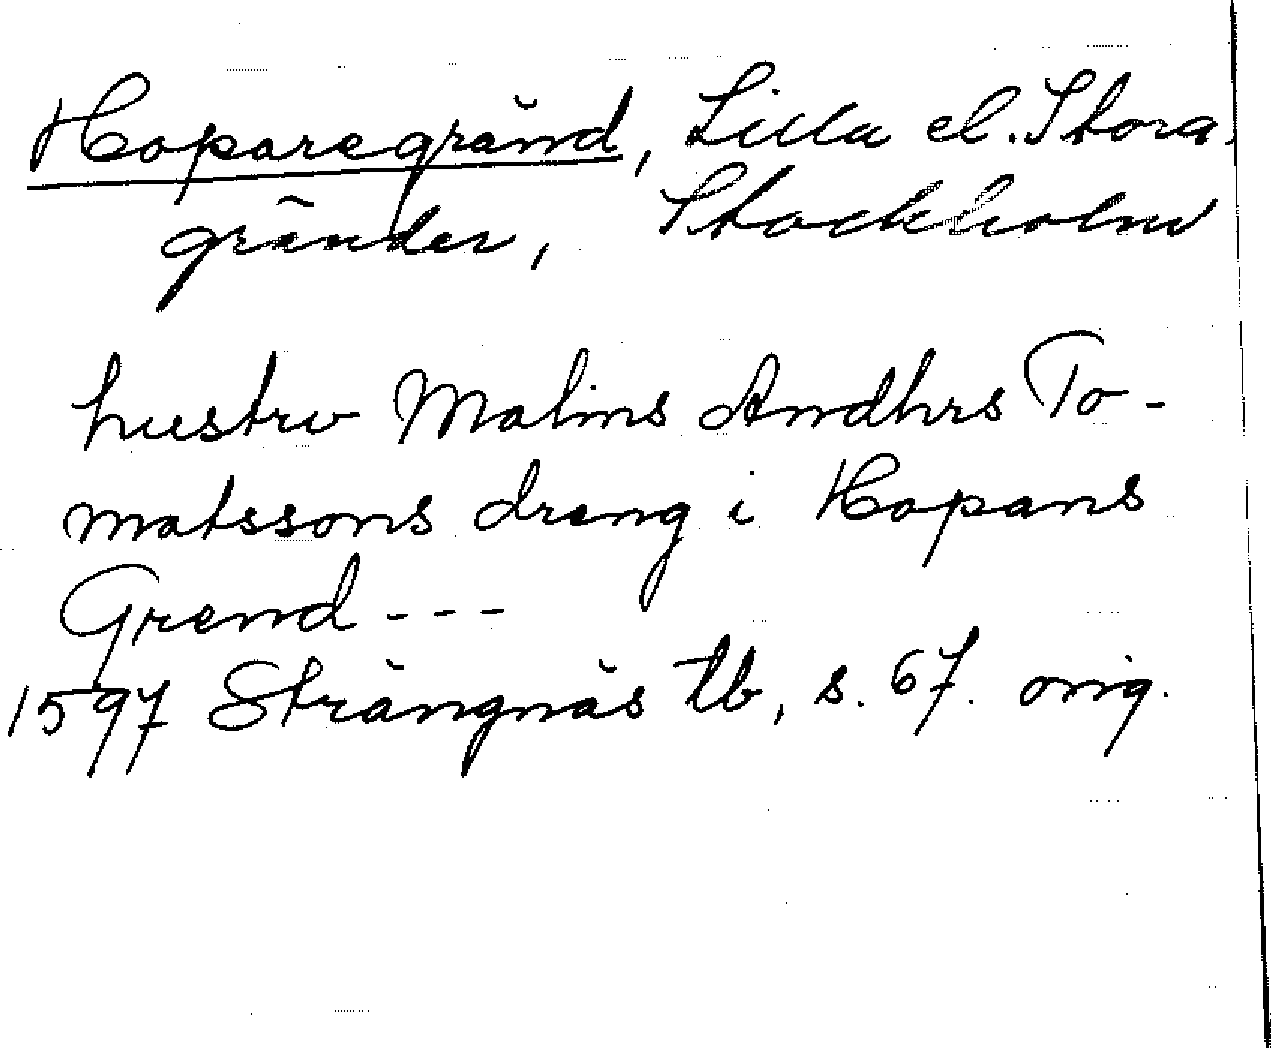 Hoparegränd, Lilla el. Stora
gränder, Stockholm
hustru Malins Andhrs To-
matssons dreng i Hopans
Grend ---
1597 Strängnäs tb, s. 67. orig.